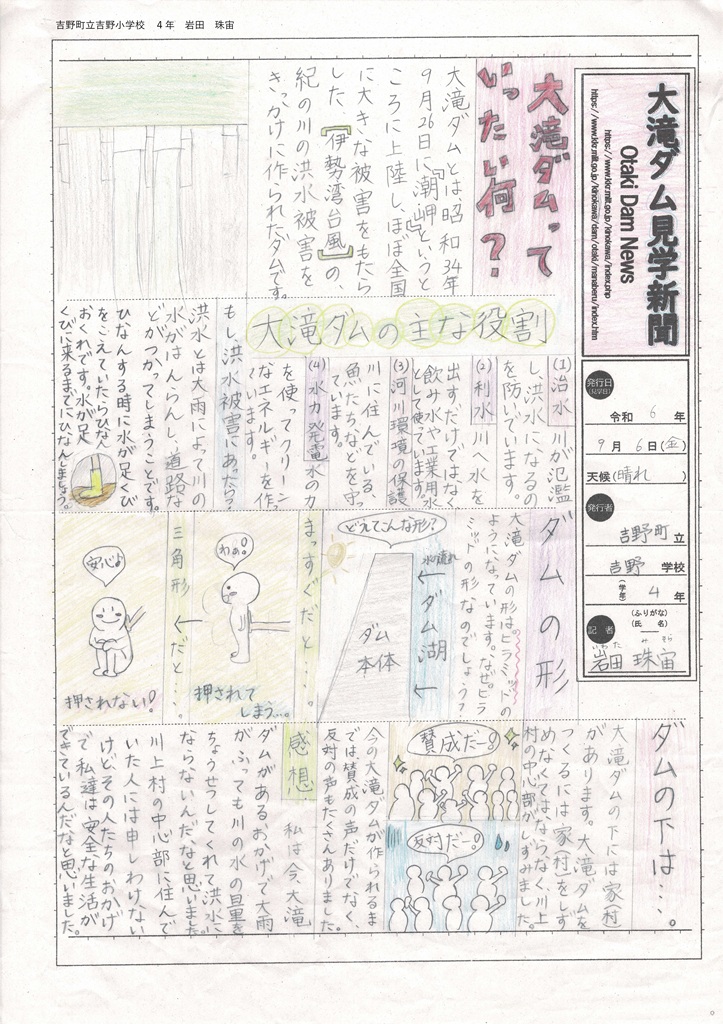 吉野町立吉野小学校　4年　岩田　珠宙
大滝ダム見学新聞
Otaki Dam News
https://www.kkr.mlit.go.jp/kinokawa/index.php
https://www.kkr.mlit.go.jp/kinokawa/dam/otaki/manaberu/index.htm
発行日
令和 6 年
9 月 6 日(金)
天候(晴れ)
発行者
吉野町 立
吉野 学校
(学年) 4 年
記者
(ふりがな)
(氏名)
いわた みそら
岩田 珠宙
大滝ダムって
いったい何？
大滝ダムとは昭和34年
9月26日に『潮岬』というと
ころに上陸し、ほぼ全国
に大きな被害をもたら
した、『伊勢湾台風』の
紀の川の洪水被害を
きっかけに作られたダムです。
大滝ダムの主な役割
(1)治水 川が氾濫
し、洪水になるの
を防いでいます。
(2)利水 川へ水を
出すだけではなく
飲み水や工業用水
として使っています。
(3)河川環境の保護
川に住んでいる、
魚たちなどを守っ
ています。
(4)水力発電 水の力
を使ってクリーン
なエネルギーを作っ
ています。
もし、洪水被害にあったら？
洪水とは大雨によって川の
水がはんらんし、道路な
どがつかってしまうことです。
ひなんする時に水が足くび
をこえていたらひなん
おくれです。水が足
くびに来るまでにひなんしましょう。
ダムの形
大滝ダムの形はピラミッドの
ようになっています。なぜピラ
ミッドの形なのでしょう？
どうしてこんな形？
水の流れ
ダム湖
ダム
本体
まっすぐだと…。
わぁ！
押されて
しまう…。
三角形
だと…。
安心♪
押されない！
ダムの下は…。
大滝ダムの下には家(村)
があります。大滝ダムを
つくるには家(村)をしず
めなくてはならなく、川上
村の中心部がしずみました。
賛成だー！
反対だー！
今の大滝ダムが作られるま
では賛成の声だけでなく、
反対の声もたくさんありました。
感想
私は今大滝
ダムがあるおかげで大雨
がふっても川の水の量を
ちょうせつしてくれて洪水に
ならないんだなと思いました。
川上村の中心部に住んで
いた人には申しわけない
けどその人たちのおかげ
で私達は安全な生活が
できているんだなと思いました。